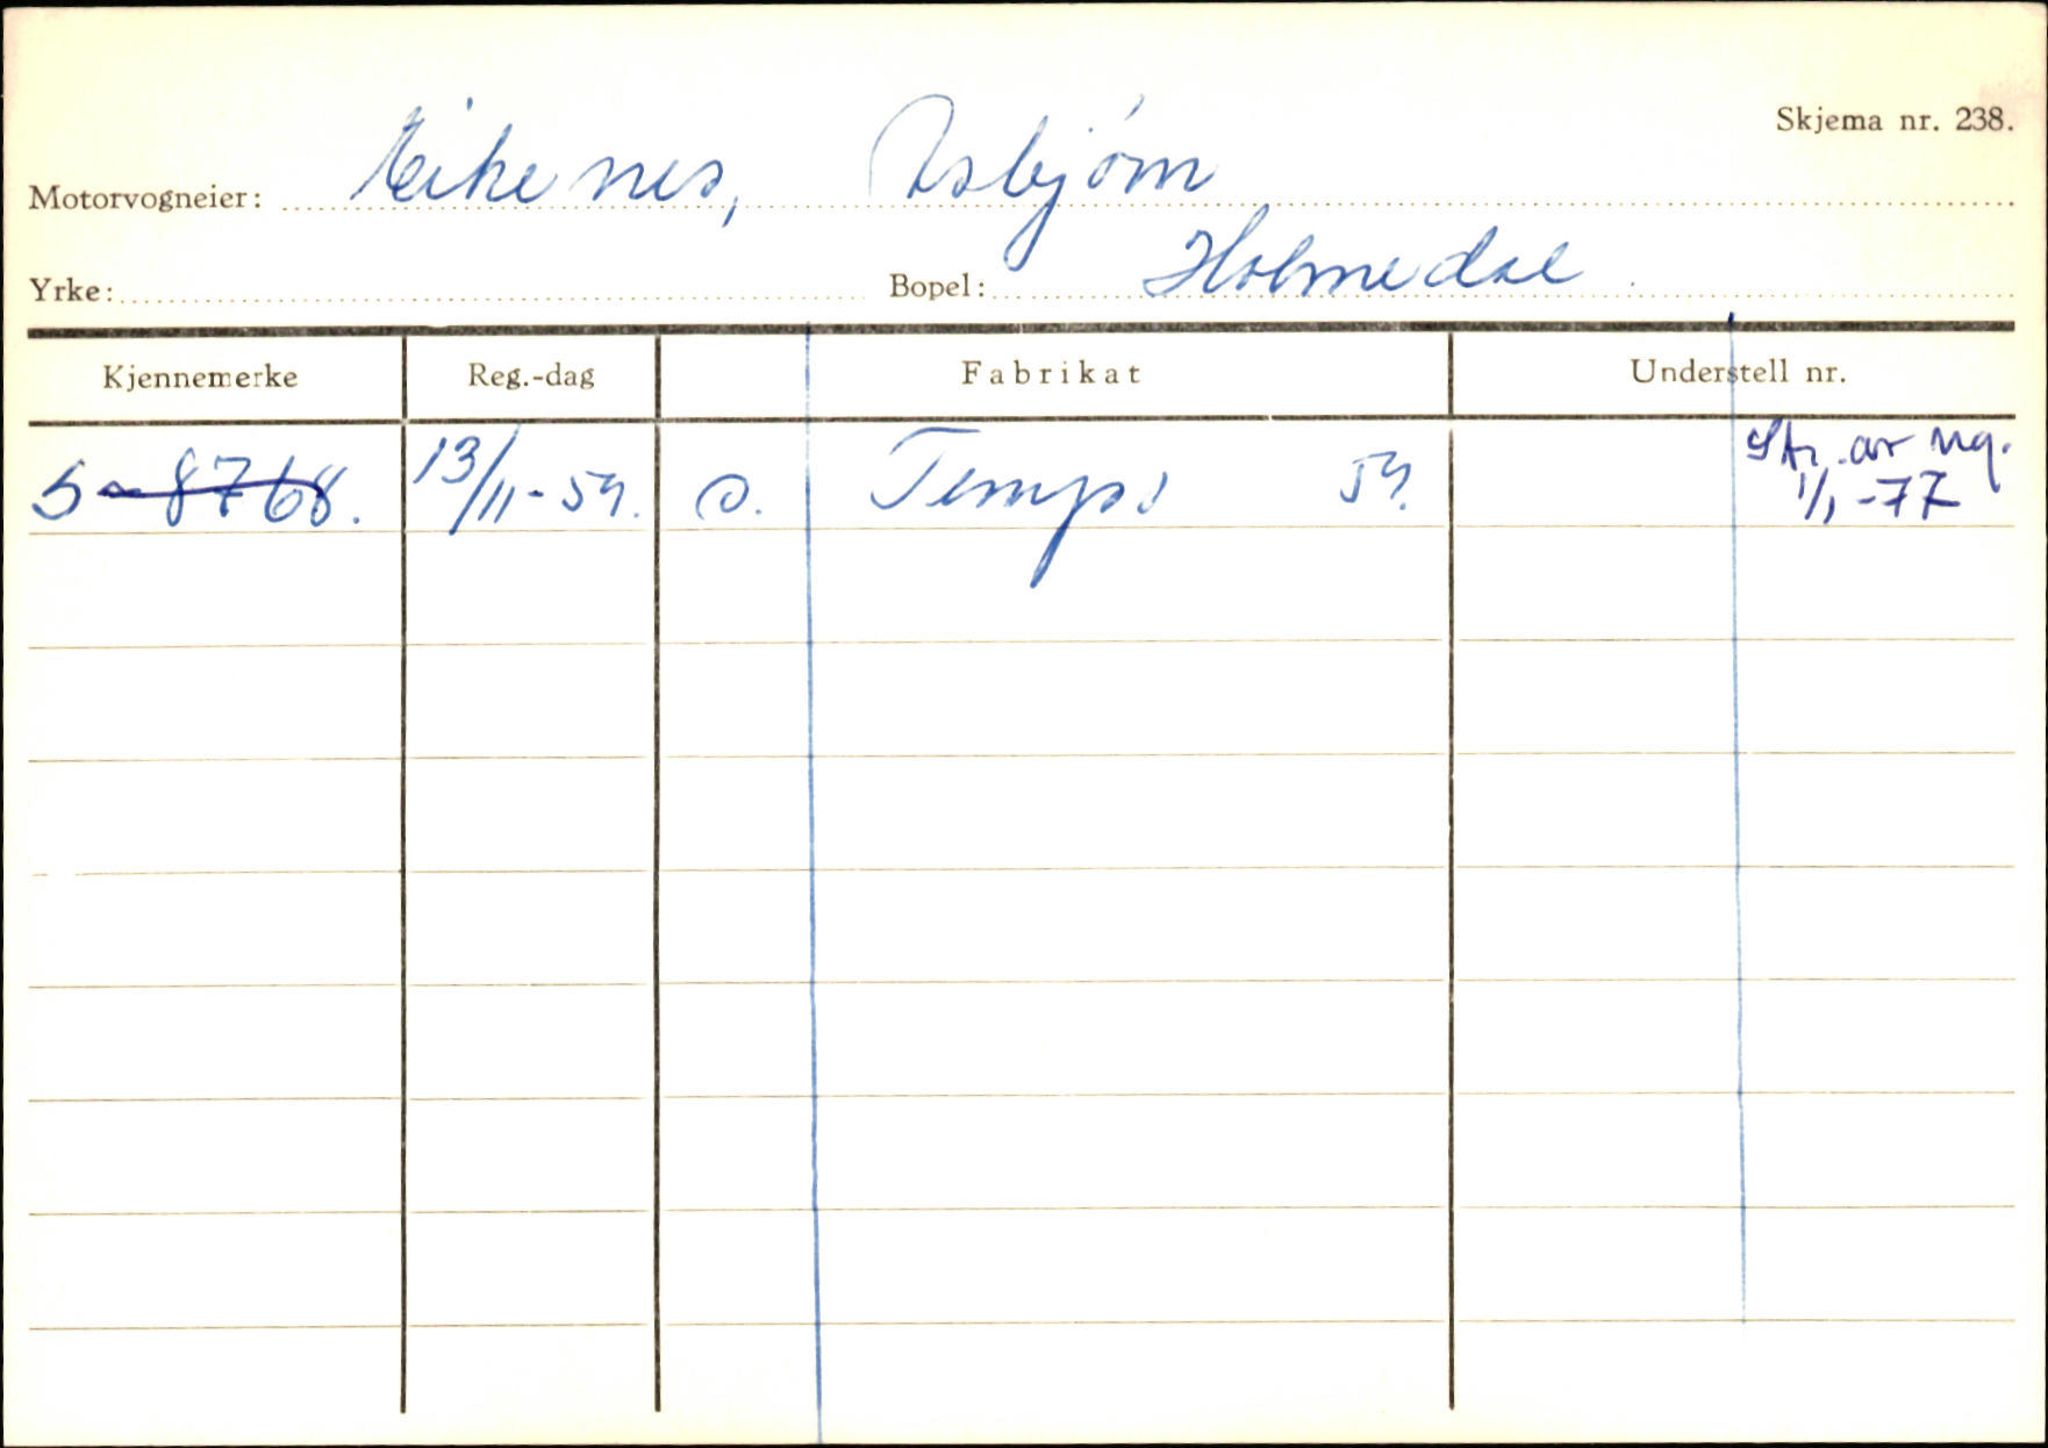 Skjema nr. 238.
Motorvogneier: Eikenes, Asbjörn
Yrke: Bopel: Holmedal
Kjennemerke Reg.-dag Fabrikat Understell nr.
S-8768. 13/11-59. O. Tempo 59. Str. av reg. 1/1-77